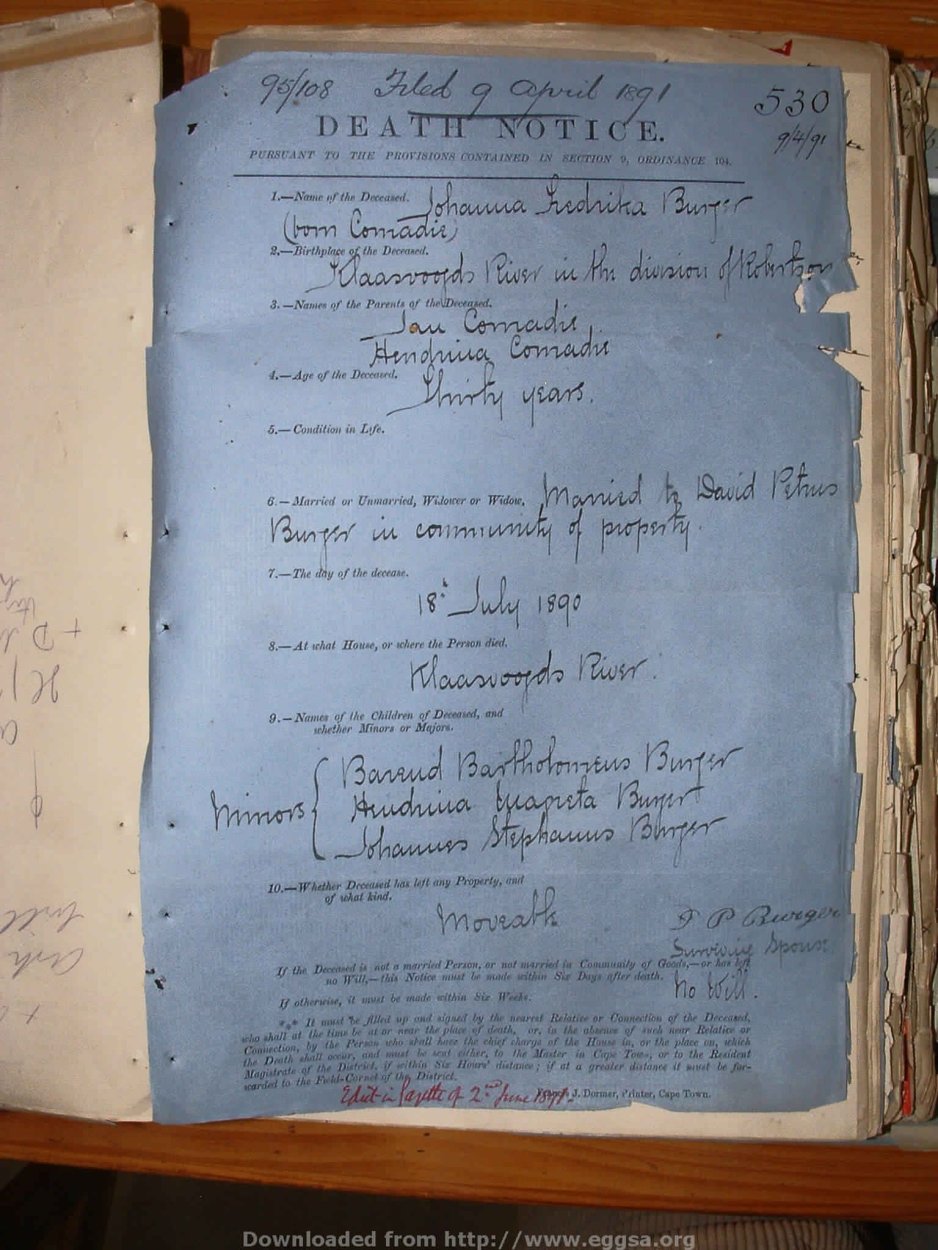 95/108 Filed 9 April 1891 530
DEATH NOTICE. 9/4/91
PURSUANT TO THE PROVISIONS CONTAINED IN SECTION 9, ORDINANCE 104.
1.—Name of the Deceased. Johanna Fredrika Burger
(born Conradie)
2.—Birthplace of the Deceased.
Klaasvoogds River in the division of Robertson
3.—Names of the Parents of the Deceased.
Jan Conradie
Hendrina Conradie
4.—Age of the Deceased.
Thirty years.
5.—Condition in Life.
6.—Married or Unmarried, Widower or Widow. Married to David Petrus
Burger in community of property.
7.—The day of the decease.
18 July 1890
8.—At what House, or where the Person died.
Klaasvoogds River.
9.—Names of the Children of Deceased, and
whether Minors or Majors.
Barend Bartholomeus Burger
Minors Hendrina Burger
Johannes Stephanus Burger
10.—Whether Deceased has left any Property, and
of what kind.
Moveable P Burger
Surviving Spouse
If the Deceased is not a married Person, or not married in Community of Goods,—or has left
no Will,—this Notice must be made within Six Days after death. No Will.
If otherwise, it must be made within Six Weeks.
*** It must be filled up and signed by the nearest Relative or Connection of the Deceased,
who shall at the time be at or near the place of death, or, in the absence of such near Relative or
Connection, by the Person who shall have the chief charge of the House in, or the place on, which
the Death shall occur, and must be sent either, to the Master in Cape Town, or to the Resident
Magistrate of the District, if within Six Hours' distance; if at a greater distance it must be for-
warded to the Field-Cornet of the District.
Edict in Gazette of 2nd June 1891. J. Dormer, Printer, Cape Town.
Downloaded from http://www.eggsa.org